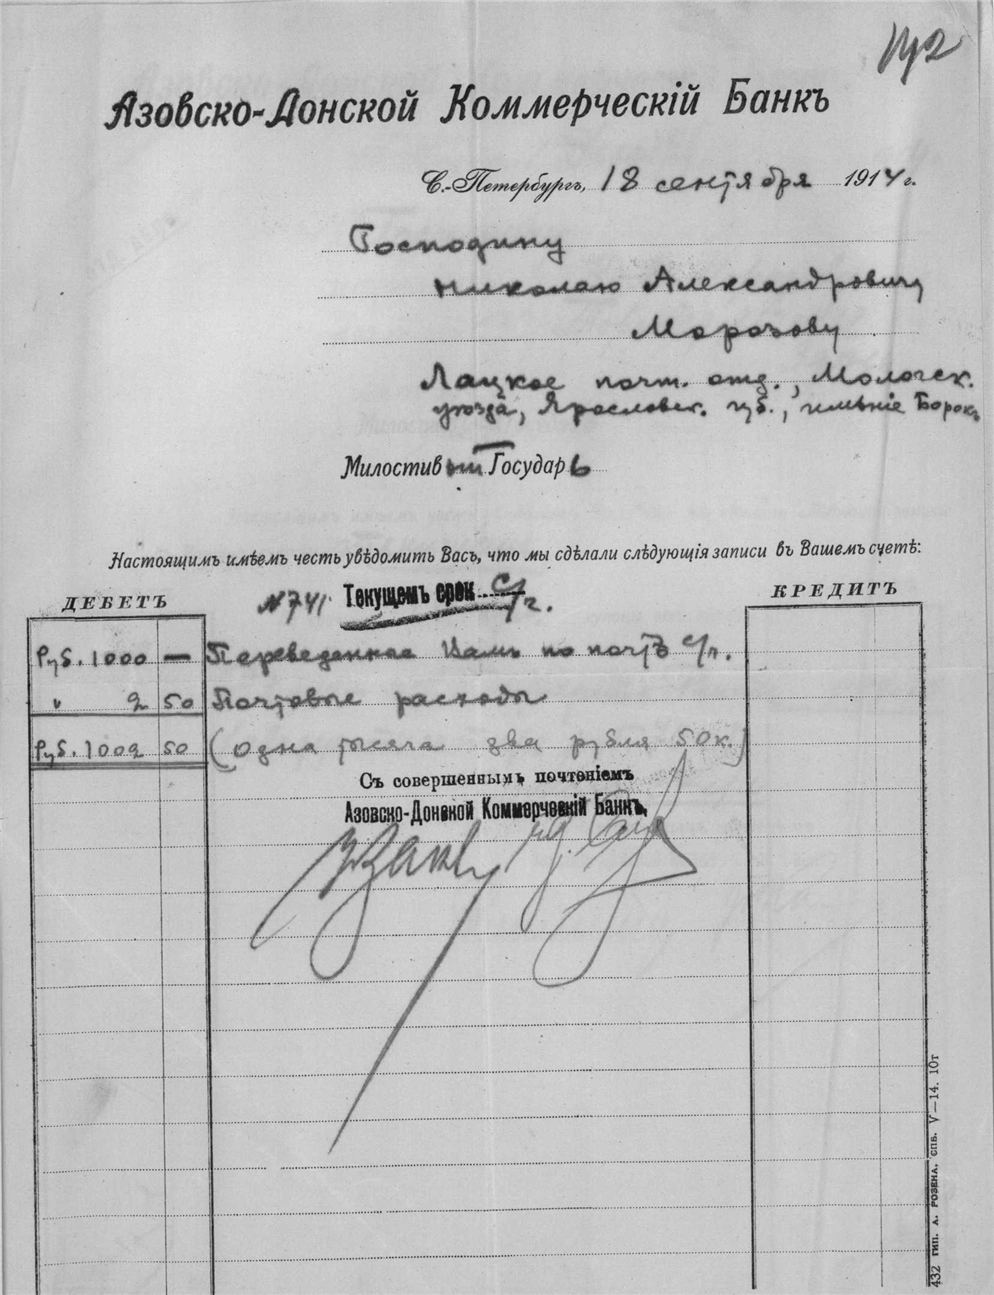 Азовско-Донской Коммерческій Банкъ
С.-Петербургъ, 18 сентября 1914 г.
Господину
Николаю Александровичу
Морозову
Лацкое почт. отд., Мологск.
уѣзда, Ярославск. губ., имѣніе Борокъ
Милостивый Государь
Настоящимъ имѣемъ честь увѣдомить Васъ, что мы сдѣлали слѣдующія записи въ Вашемъ счетѣ:
ДЕБЕТЪ №741 Текущемъ срок с/г. КРЕДИТЪ
Руб. 1000 — Переведенное Вамъ по почтѣ с/п.
" 2 50 Почтовые расходы
Руб. 1002 50 (Одна тысяча два рубля 50 к.)
Съ совершеннымъ почтеніемъ
Азовско-Донской Коммерческій Банкъ,
432 тип. А. РОЗЕНА. СПБ. V—14. 10т